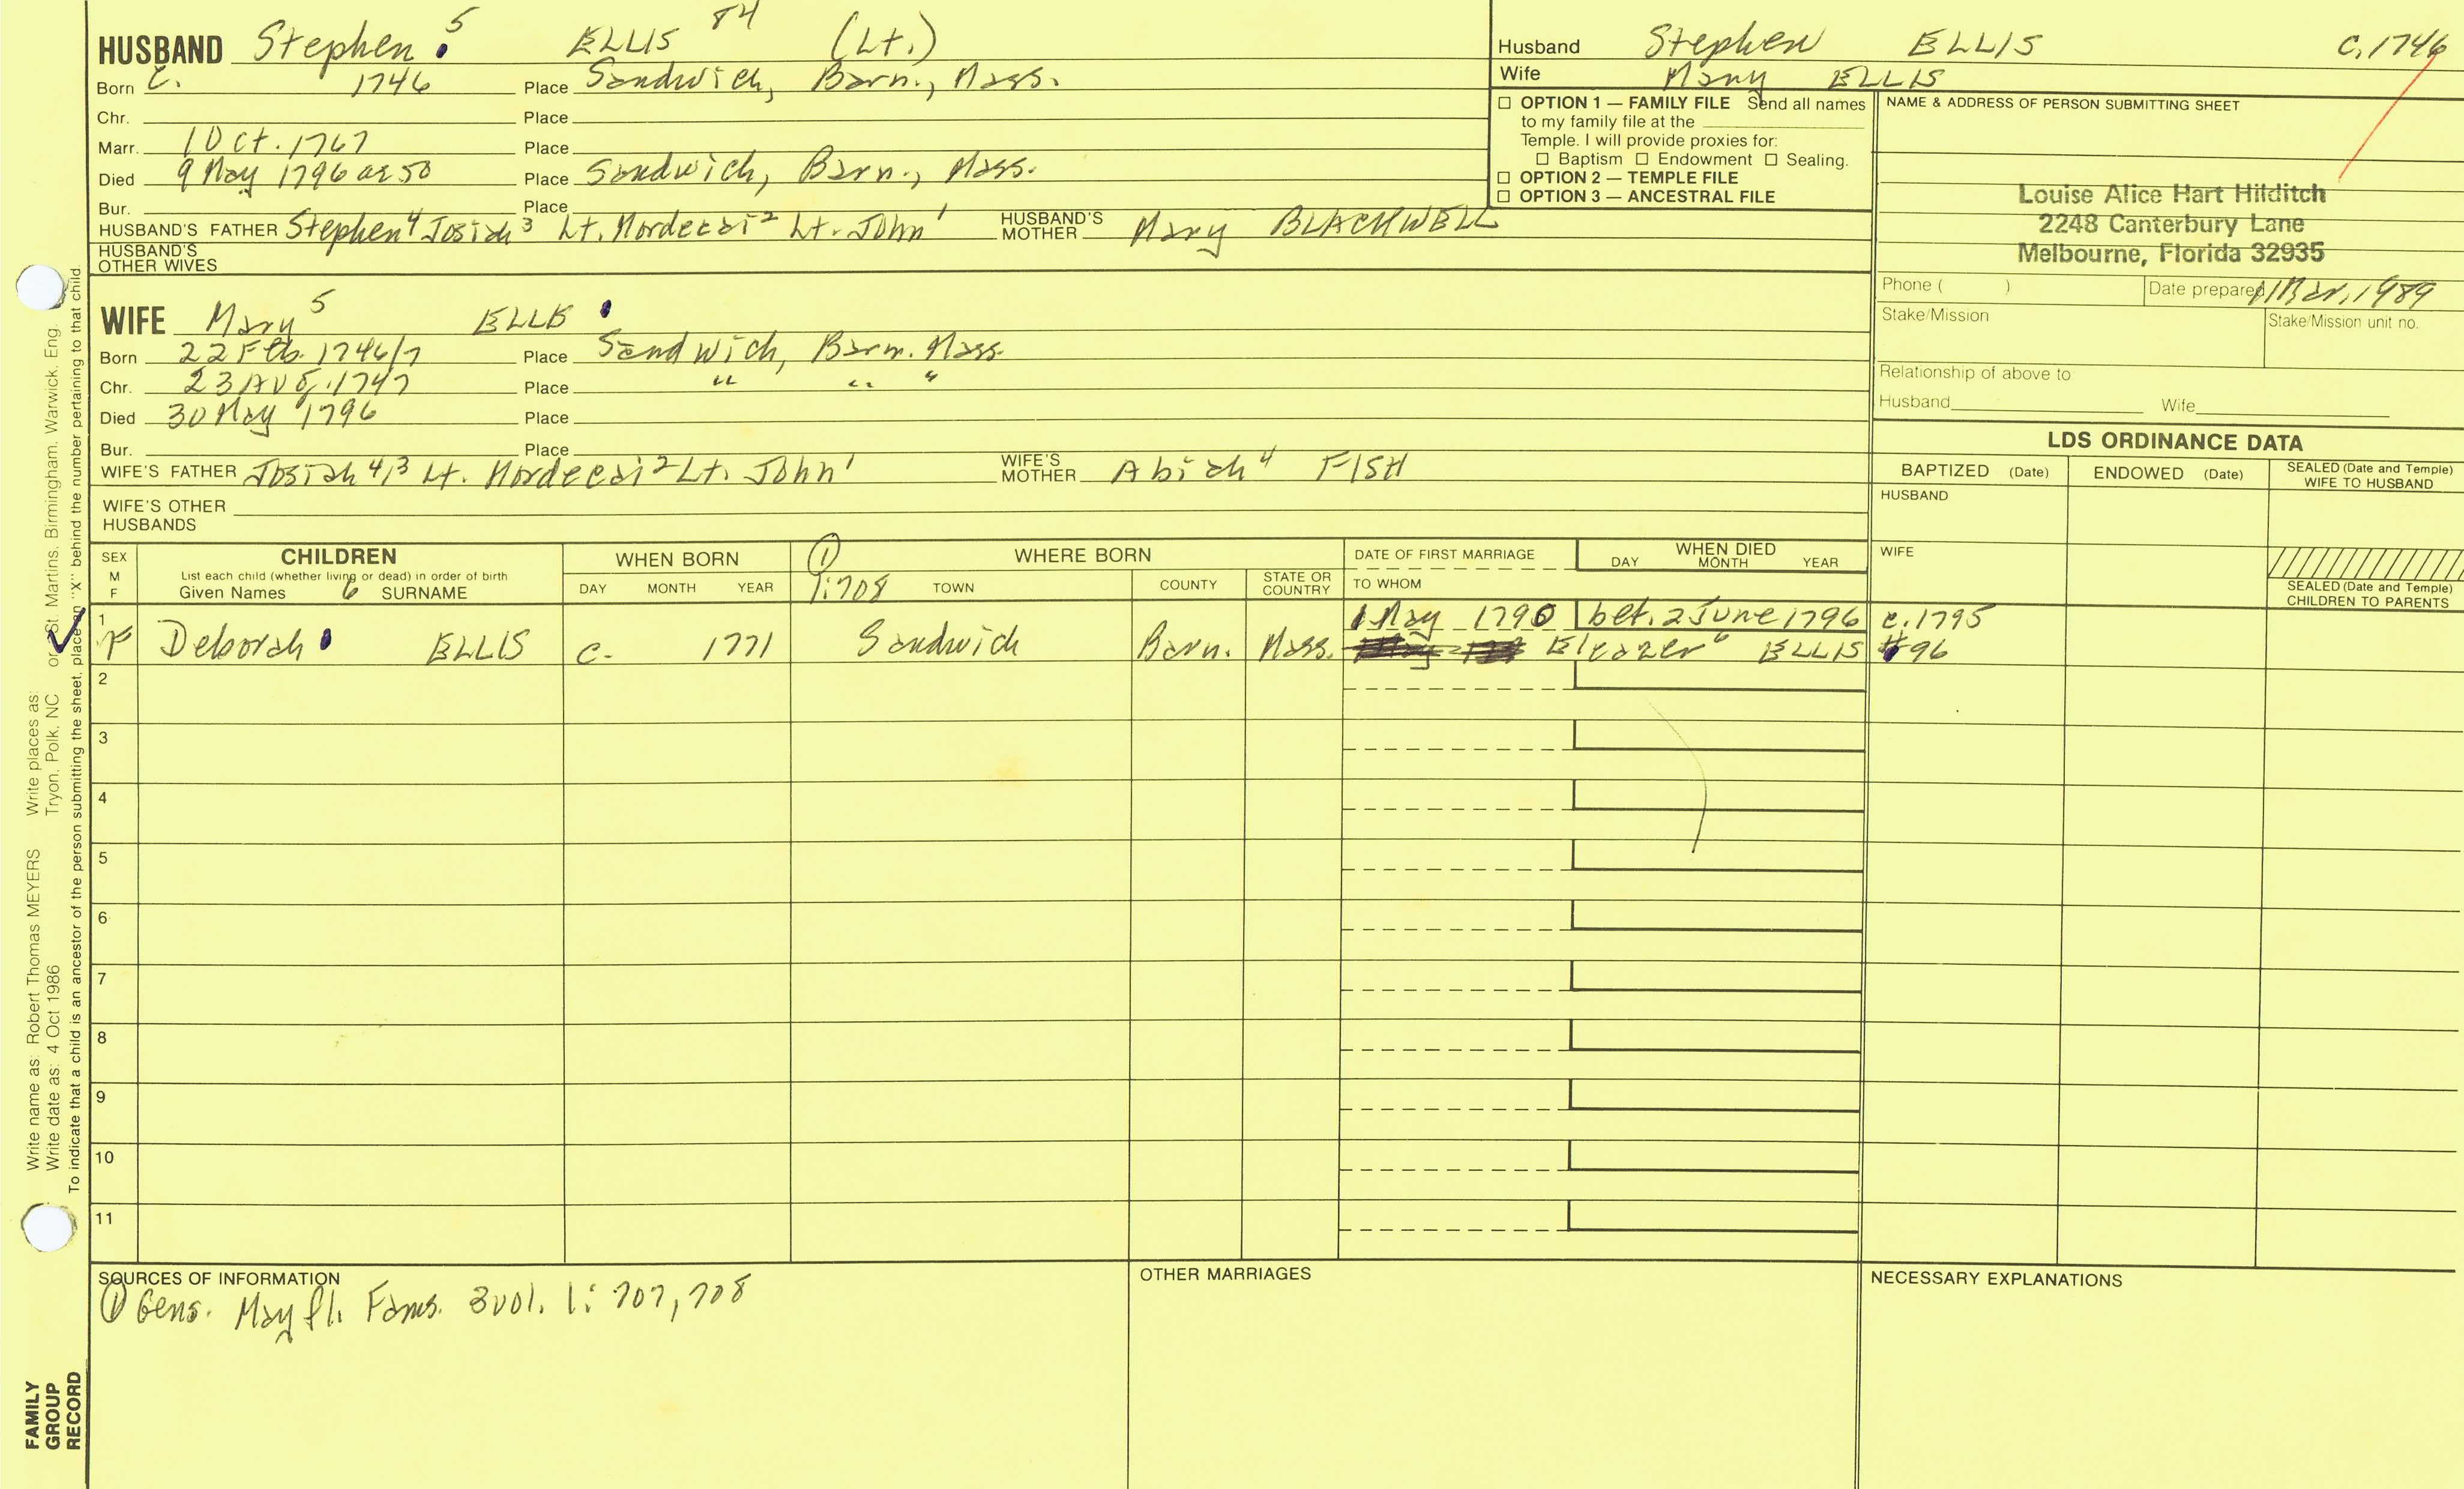 HUSBAND Stephen 5 ELLIS 84 (Lt.)
Born c. 1746 Place Sandwich, Barn., Mass.
Chr. Place
Marr. 1 Oct. 1767 Place
Died 9 May 1796 ae 50 Place Sandwich, Barn., Mass.
Bur. Place
HUSBAND'S FATHER Stephen 4 Josiah 3 Lt. Mordecai 2 Lt. John 1 HUSBAND'S MOTHER Mary BLACKWELL
HUSBAND'S OTHER WIVES
Husband Stephen ELLIS c. 1746
Wife Mary ELLIS
☐ OPTION 1 — FAMILY FILE Send all names
to my family file at the
Temple. I will provide proxies for:
☐ Baptism ☐ Endowment ☐ Sealing.
☐ OPTION 2 — TEMPLE FILE
☐ OPTION 3 — ANCESTRAL FILE
NAME & ADDRESS OF PERSON SUBMITTING SHEET
Louise Alice Hart Hilditch
2248 Canterbury Lane
Melbourne, Florida 32935
Phone ( ) Date prepared 1 Mar. 1989
Stake/Mission Stake/Mission unit no.
Relationship of above to
Husband Wife
WIFE Mary 5 ELLIS
Born 22 Feb. 1746/7 Place Sandwich, Barn. Mass.
Chr. 23 Aug. 1747 Place " " "
Died 30 May 1796 Place
Bur. Place
WIFE'S FATHER Josiah 4,3 Lt. Mordecai 2 Lt. John 1 WIFE'S MOTHER Abiah 4 FISH
WIFE'S OTHER HUSBANDS
LDS ORDINANCE DATA
BAPTIZED (Date) ENDOWED (Date) SEALED (Date and Temple) WIFE TO HUSBAND
HUSBAND
WIFE
SEALED (Date and Temple) CHILDREN TO PARENTS
SEX M F CHILDREN WHEN BORN ① WHERE BORN DATE OF FIRST MARRIAGE WHEN DIED
List each child (whether living or dead) in order of birth DAY MONTH YEAR
Given Names 6 SURNAME DAY MONTH YEAR 1:708 TOWN COUNTY STATE OR COUNTRY TO WHOM
1 1 May 1790 bet. 2 June 1796 c. 1795
F Deborah ELLIS c. 1771 Sandwich Barn. Mass. Eleazer 6 ELLIS #96
2
3
4
5
6
7
8
9
10
11
SOURCES OF INFORMATION
① Gens. Mayfl. Fams. 3 vol. 1: 707, 708
OTHER MARRIAGES
NECESSARY EXPLANATIONS
Write name as: Robert Thomas MEYERS Write places as:
Write date as: 4 Oct 1986 Tryon, Polk, NC or St. Martins, Birmingham, Warwick, Eng.
To indicate that a child is an ancestor of the person submitting the sheet, place an "X" behind the number pertaining to that child.
FAMILY
GROUP
RECORD